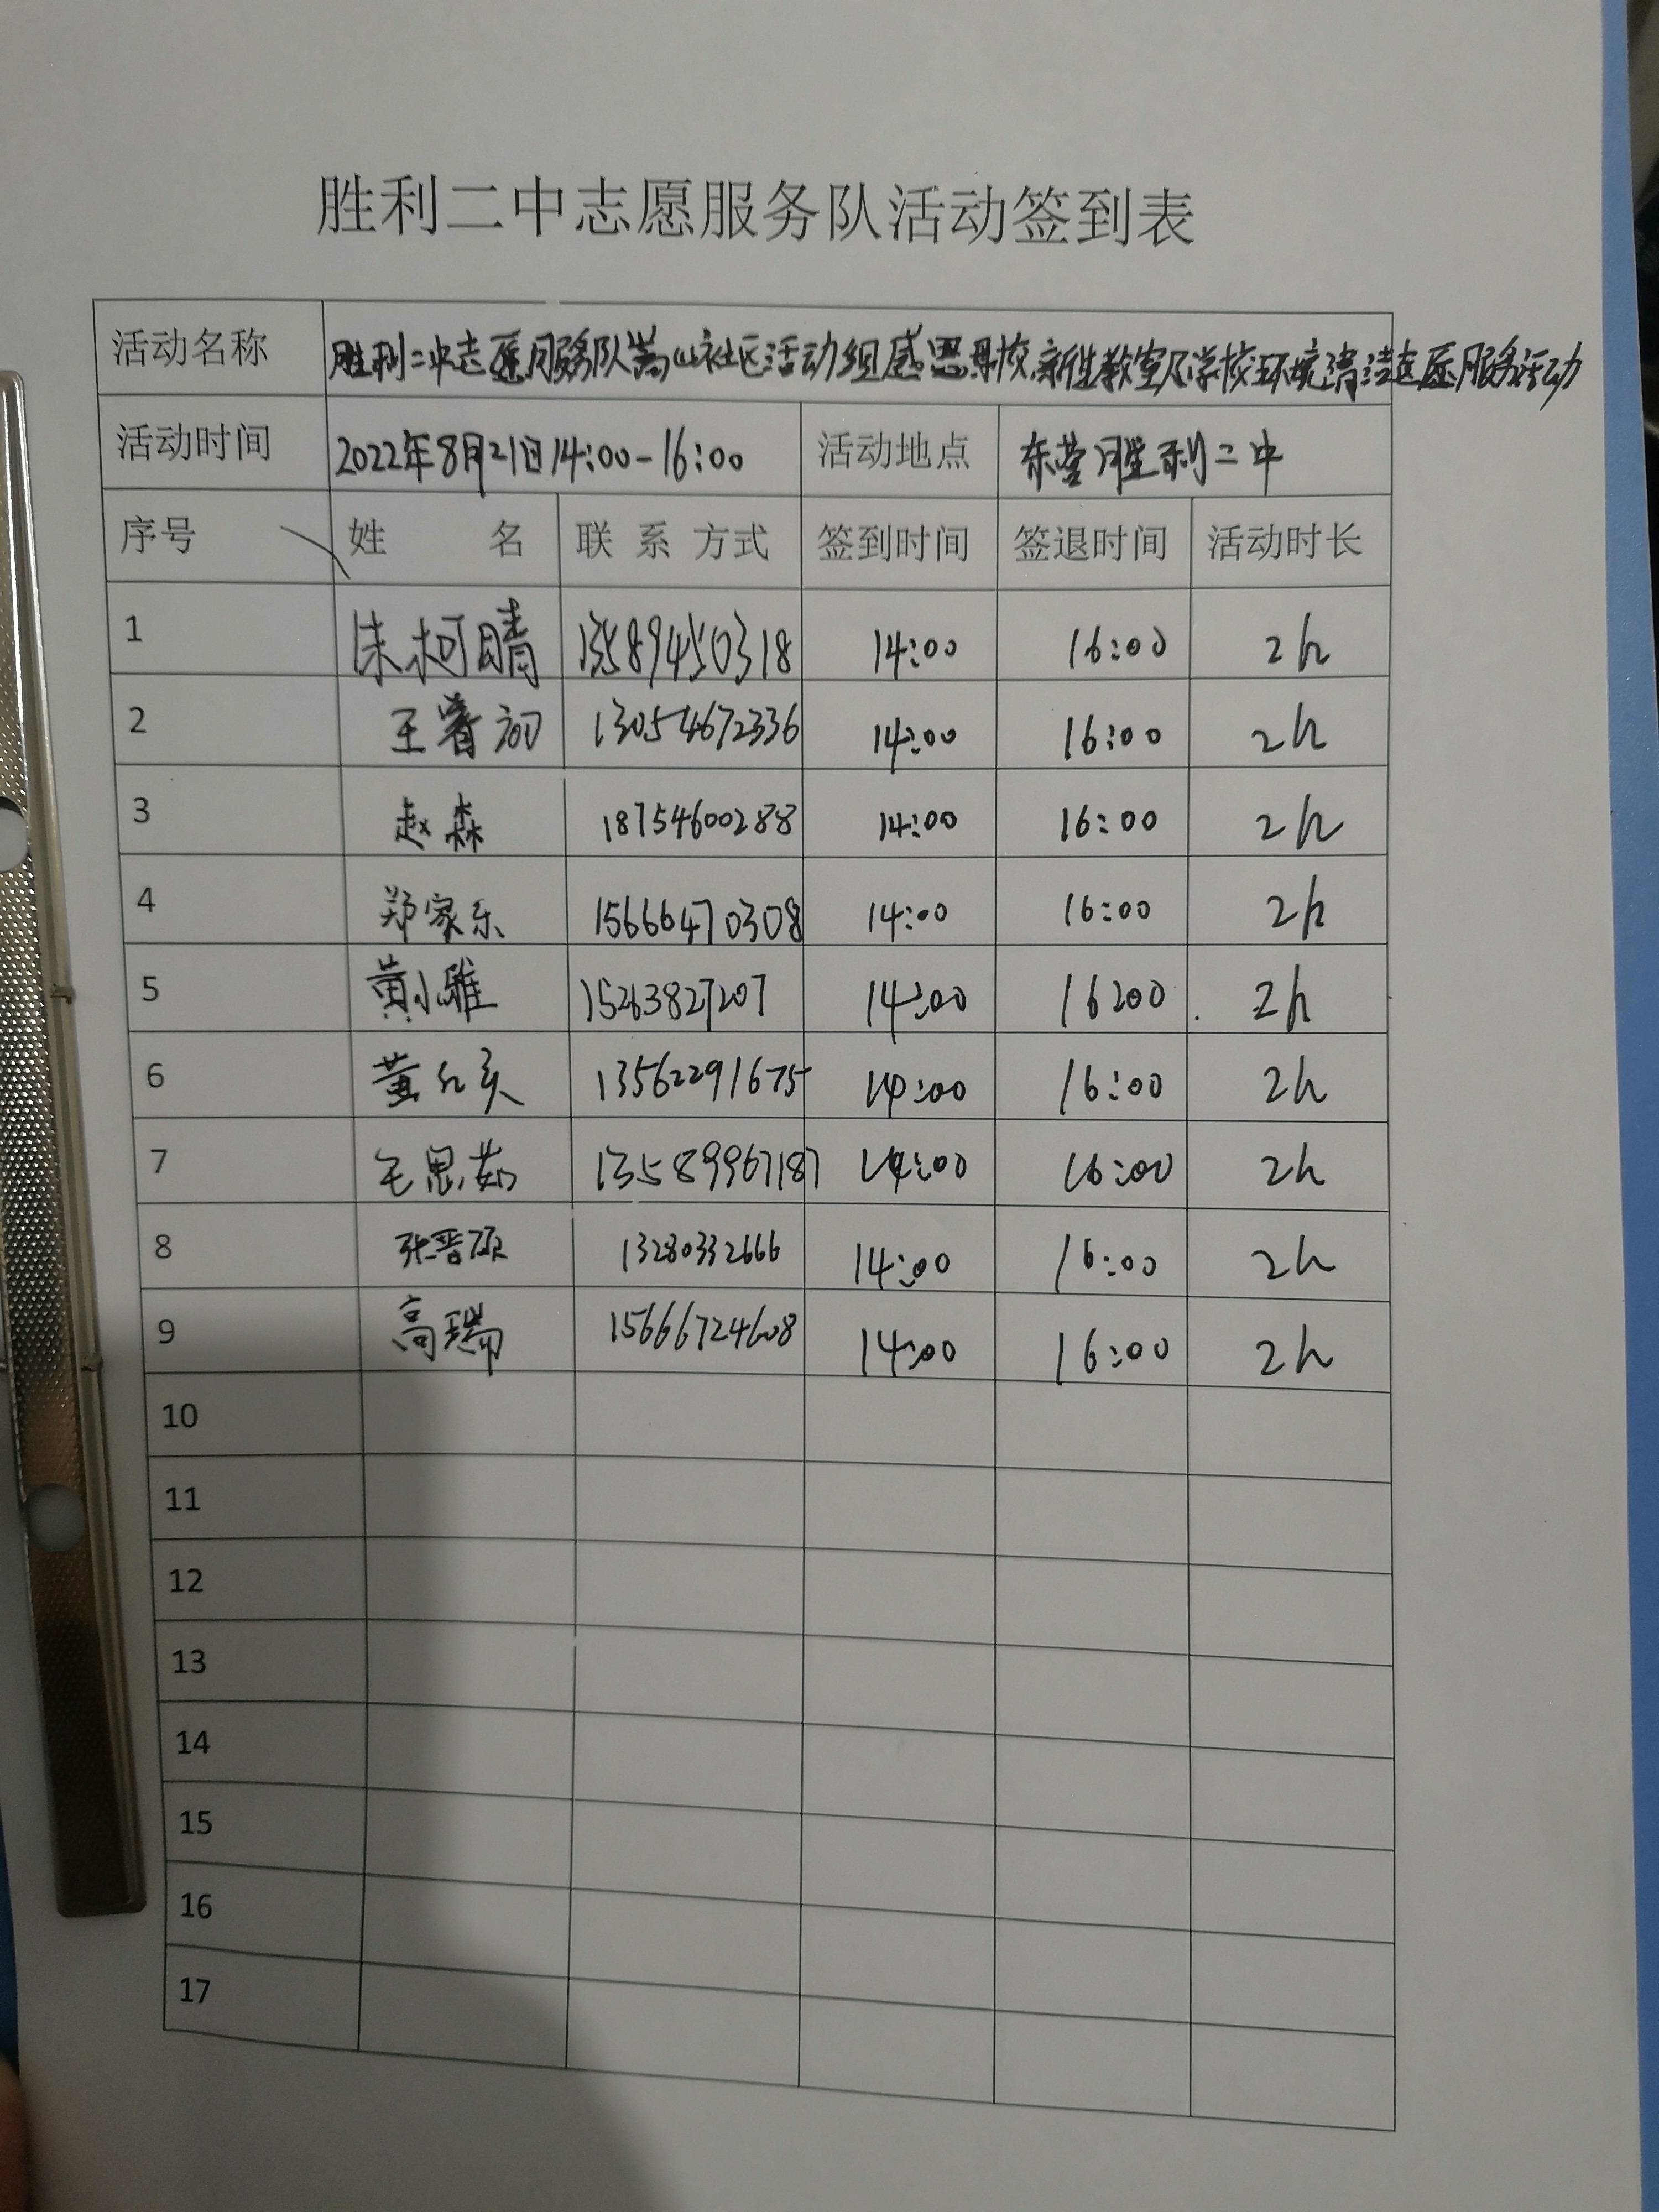 胜利二中志愿服务队活动签到表
活动名称 胜利二中志愿服务队嵩山社区活动组感恩母校,新生教室及学校环境清洁志愿服务活动
活动时间 2022年8月21日14:00-16:00 活动地点 东营胜利二中
序号 姓 名 联系方式 签到时间 签退时间 活动时长
1 朱柯晴 13589450318 14:00 16:00 2h
2 王睿初 13054672336 14:00 16:00 2h
3 赵森 18754600288 14:00 16:00 2h
4 郑家乐 15666470308 14:00 16:00 2h
5 黄小雅 15263827207 14:00 16:00 2h
6 13562291675 14:00 16:00 2h
7 毛思茹 13589967187 14:00 16:00 2h
8 张晋硕 13280332666 14:00 16:00 2h
9 高瑞 15666724608 14:00 16:00 2h
10
11
12
13
14
15
16
17